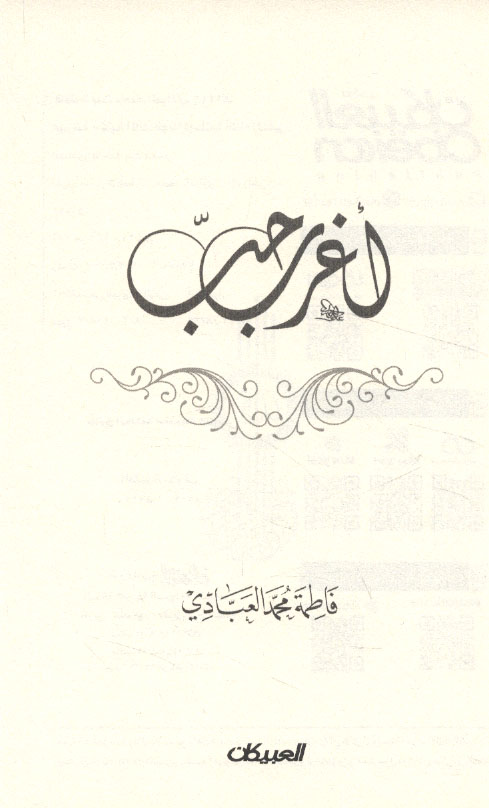 أغرب حبّ
فَاطِمَة مُحَمَّد العَبَّادِيّ
العبيكان